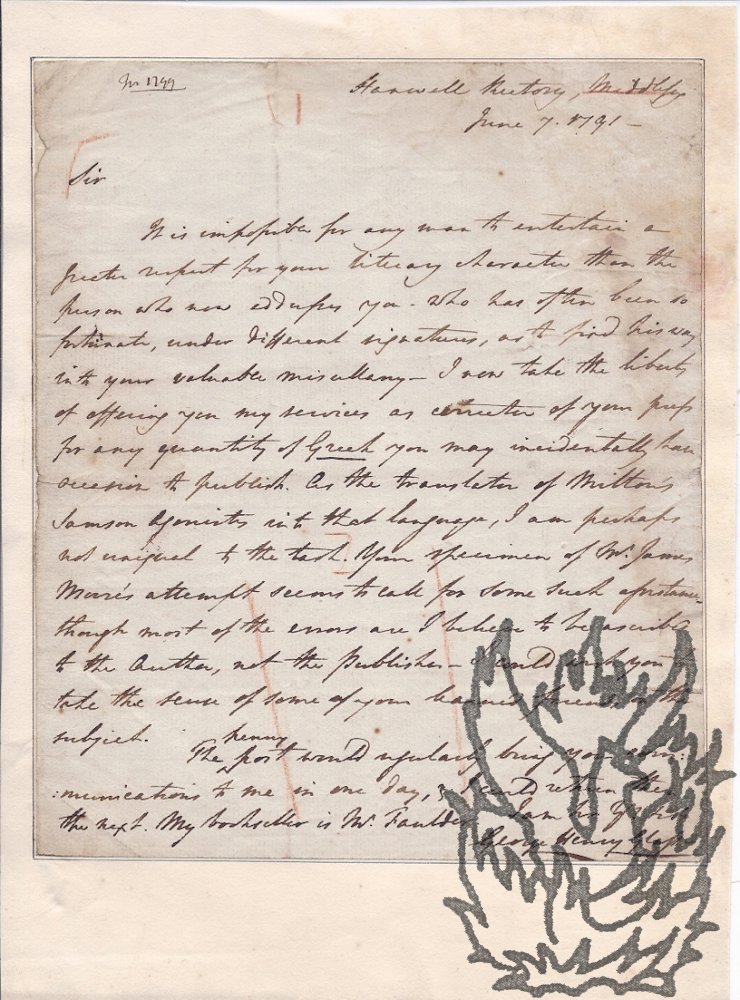 Hanwell Rectory, Middlesex
June 7. 1791 -
Sir
It is impossible for any man to entertain a
greater respect for your literary character than the
person who now addresses you - who has often been so
fortunate, under different signatures, as to find his way
into your valuable miscellany - I now take the liberty
of offering you my services as corrector of your press
for any quantity of Greek you may incidentally have
occasion to publish. As the translator of Milton's
Samson Agonistes into that language, I am perhaps
not unequal to the task. Your specimen of Mr. James
Moore's attempt seems to call for some such assistance
though most of the errors are I believe to be ascribed
to the Author, not the Publisher - I could wish you to
take the sense of some of your learned friends on the
subject.
The penny post would regularly bring your com:
:munications to me in one day, & I could return them
the next. My bookseller is Mr. Faulder I am Sir Yours
George Henry Glasse